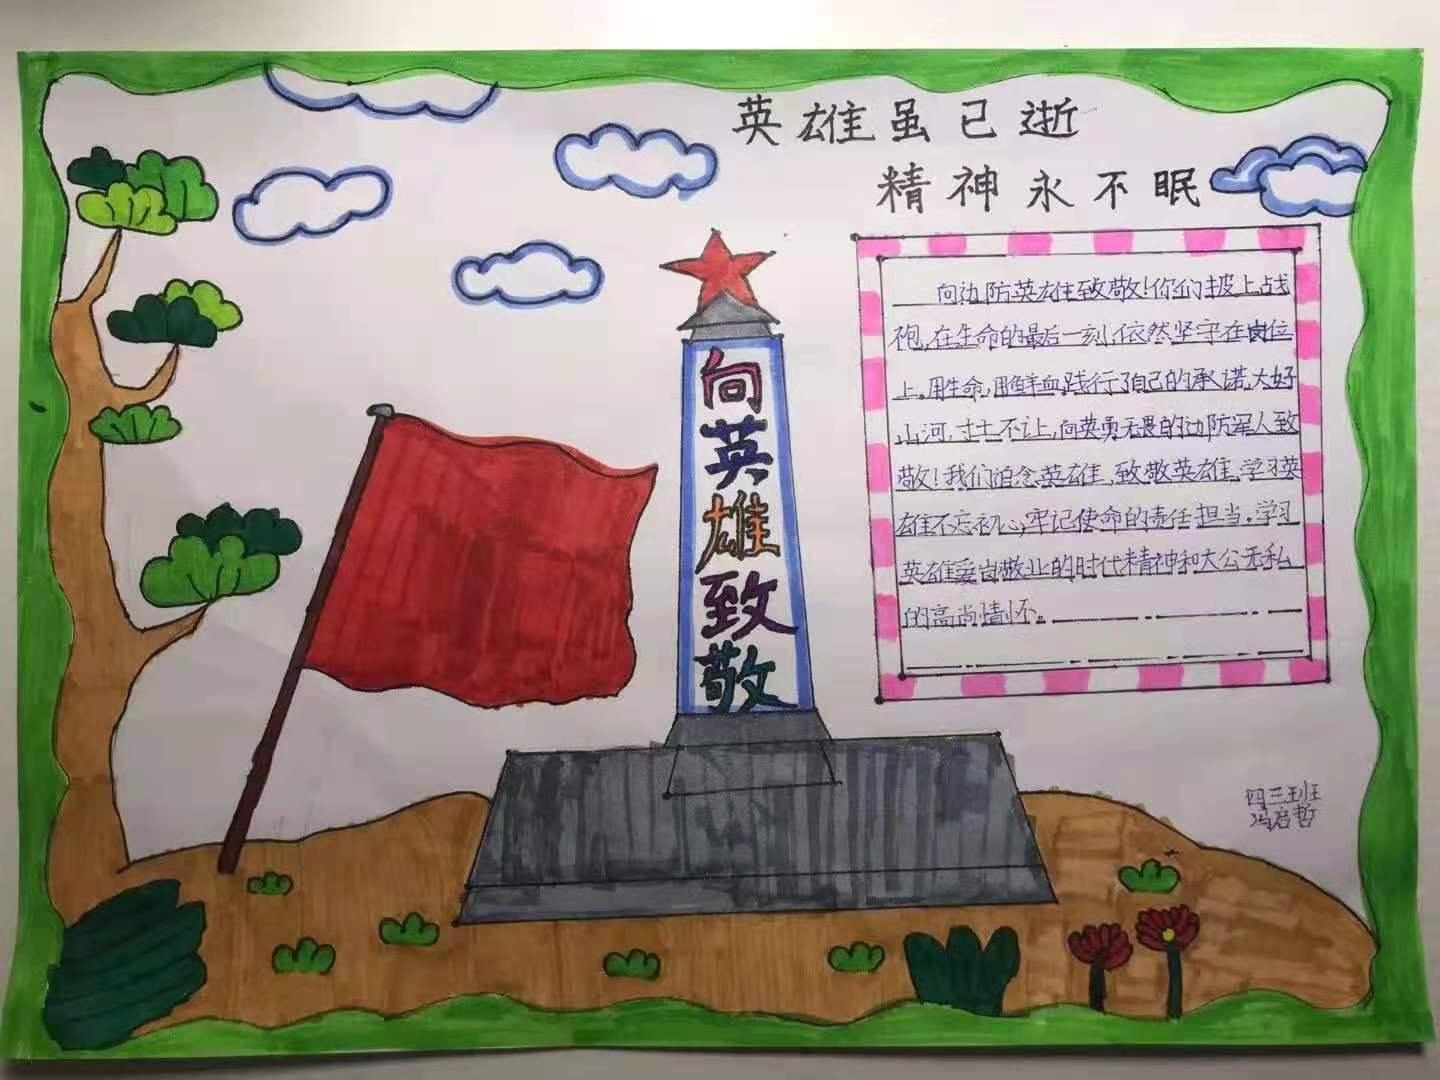 英雄虽已逝
精神永不眠
向英雄致敬
向边防英雄致敬！你们披上战
袍,在生命的最后一刻,依然坚守在岗位
上。用生命,用鲜血践行了自己的承诺,大好
山河,寸土不让,向英勇无畏的边防军人致
敬！我们追念英雄,致敬英雄,学习英
雄不忘初心,牢记使命的责任担当。学习
英雄爱岗敬业的时代精神和大公无私
的高尚情怀。
四三班
冯启哲